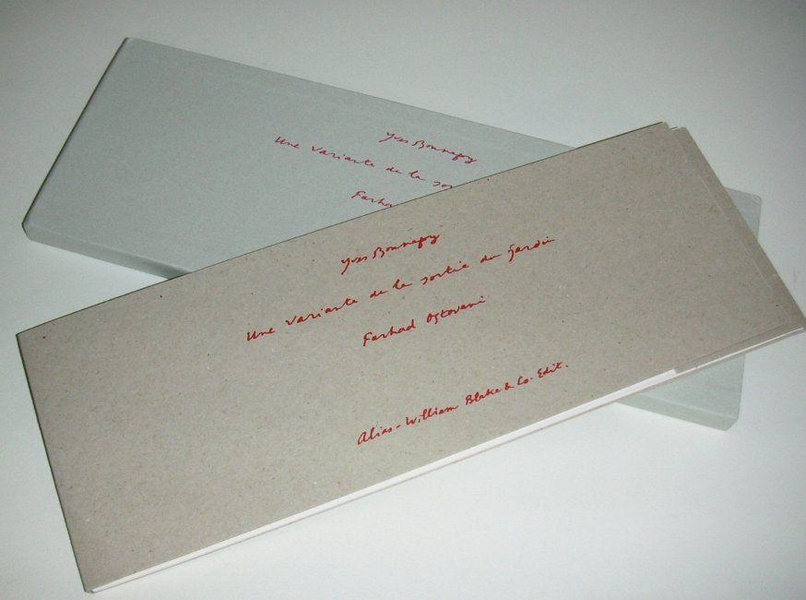 Yves Bonnefoy
Une variante de la sor
Farha
Yves Bonnefoy
Une variante de la sortie du jardin
Farhad Ostovani
Alias - William Blake & Co. Edit.